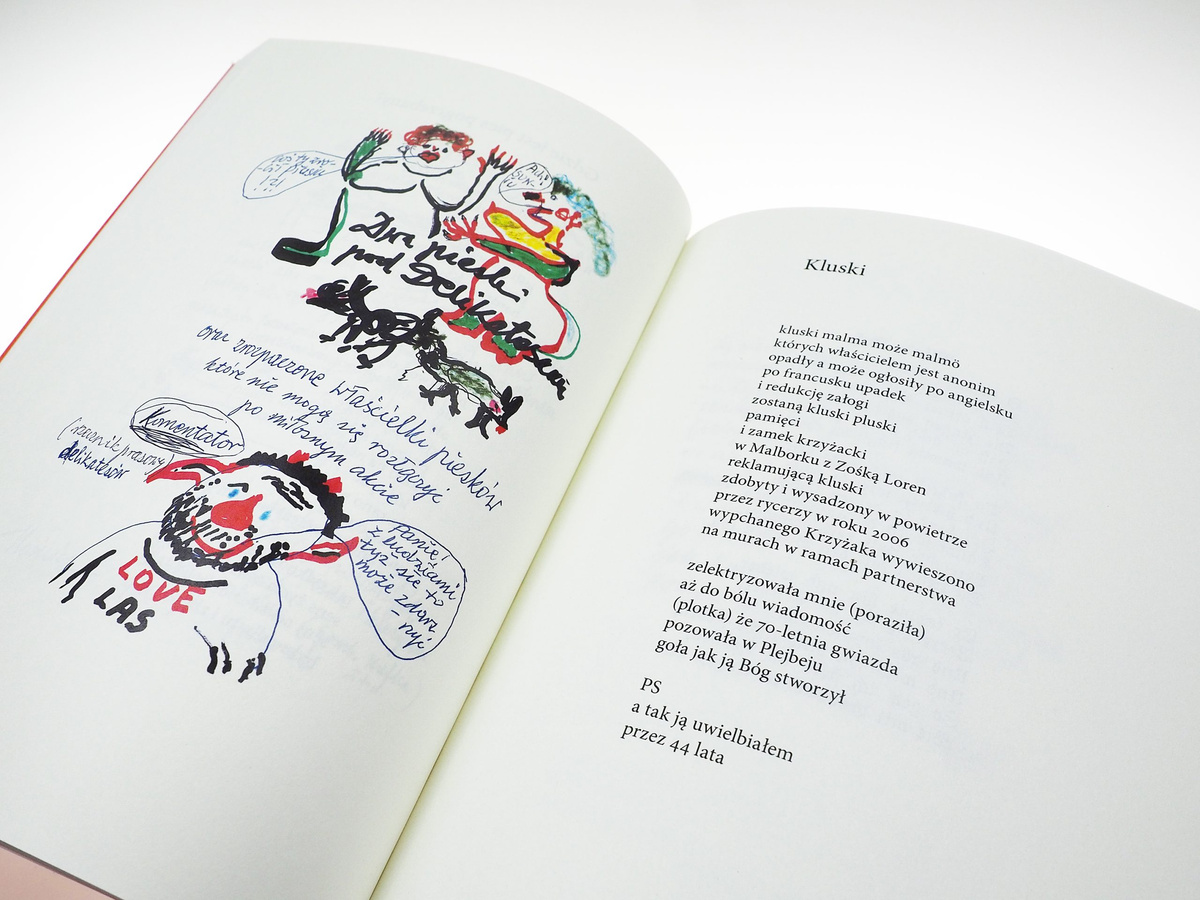 coś ty zro-
bił Prusiu
!?!
Dwa pieski
pod Delikatesami
oraz zrozpaczone właścicielki piesków
które nie mogą się rozłączyć
po miłosnym akcie
Komentator
(rzecznik prasowy)
delikatesów
Panie!
z ludźmi
też się to
może zdarz
-yć
LOVE
LAS
Kluski
kluski malma może malmö
których właścicielem jest anonim
opadły a może ogłosiły po angielsku
po francusku upadek
i redukcję załogi
zostaną kluski pluski
pamięci
i zamek krzyżacki
w Malborku z Zośką Loren
reklamującą kluski
zdobyty i wysadzony w powietrze
przez rycerzy w roku 2006
wypchanego Krzyżaka wywieszono
na murach w ramach partnerstwa
zelektryzowała mnie (poraziła)
aż do bólu wiadomość
(plotka) że 70-letnia gwiazda
pozowała w Plejbeju
goła jak ją Bóg stworzył
PS
a tak ją uwielbiałem
przez 44 lata